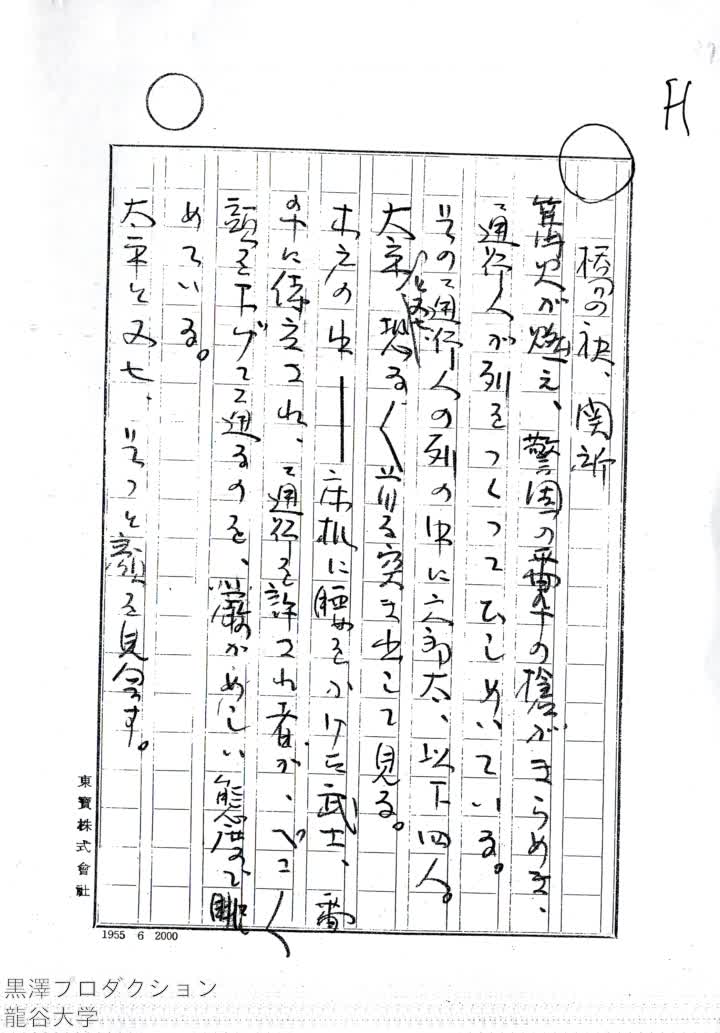 H
橋の袂、関所
篝火が燃え、警固の番卒の槍がきらめき、
通行人が列をつくってひしめいている。
その通行人の列の中に六郎太、以下四人。
太平、恐る〱首を突き出して見る。
木戸の中――床机に腰をかけた武士、番
卒に侍立され、通行を許された者が、ペコ〱
頭を下げて通るのを、厳かめしい態度で眺
めている。
太平と又七、そっと顔を見合す。
東寶株式會社
1955 6 2000
黒澤プロダクション
龍谷大学